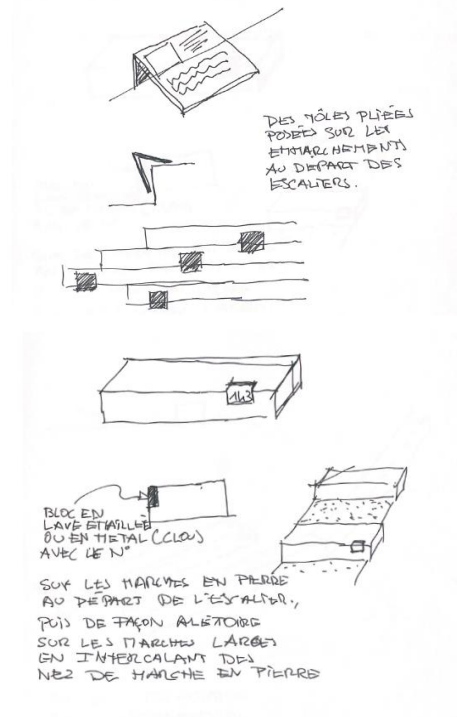 DES TÔLES PLIÉES
POSÉES SUR LES
EMMARCHEMENTS
AU DEPART DES
ESCALIERS.
143
BLOC EN
LAVE EMAILLEE
OU EN METAL (CLOU)
AVEC LE N°
SUR LES MARCHES EN PIERRE
AU DÉPART DE L'ESCALIER.,
PUIS DE FAÇON ALÉTOIRE
SUR LES MARCHES LARGES
EN INTERCALANT DES
NEZ DE MARCHE EN PIERRE